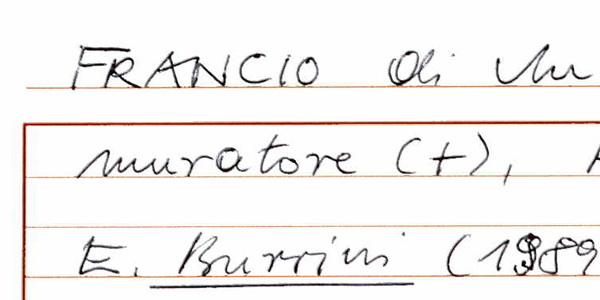 FRANCIO di
muratore (+),
E. Burrini (1989